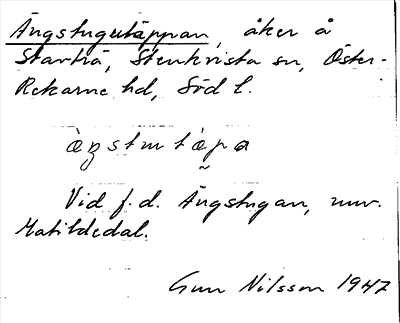 Ängstugutäppan, åker å
Starrtä, Stenkvista sn, Öster-
Rekarne hd, Söd l.
Vid f.d. Ängstugan, nuv.
Matildedal.
Gun Nilsson 1947